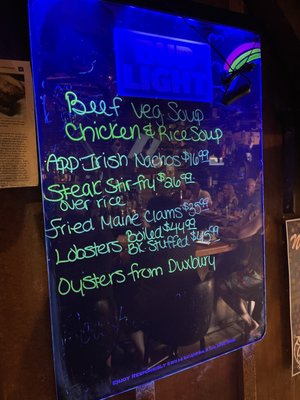 BUD LIGHT
Beef Veg Soup
Chicken & Rice Soup
ADD: Irish Nachos $16.99
Steak Stir-fry $26.99
over rice
Fried Maine Clams $35.99
Lobsters Boiled $44.99
BK. Stuffed $45.99
Oysters from Duxbury
ENJOY RESPONSIBLY